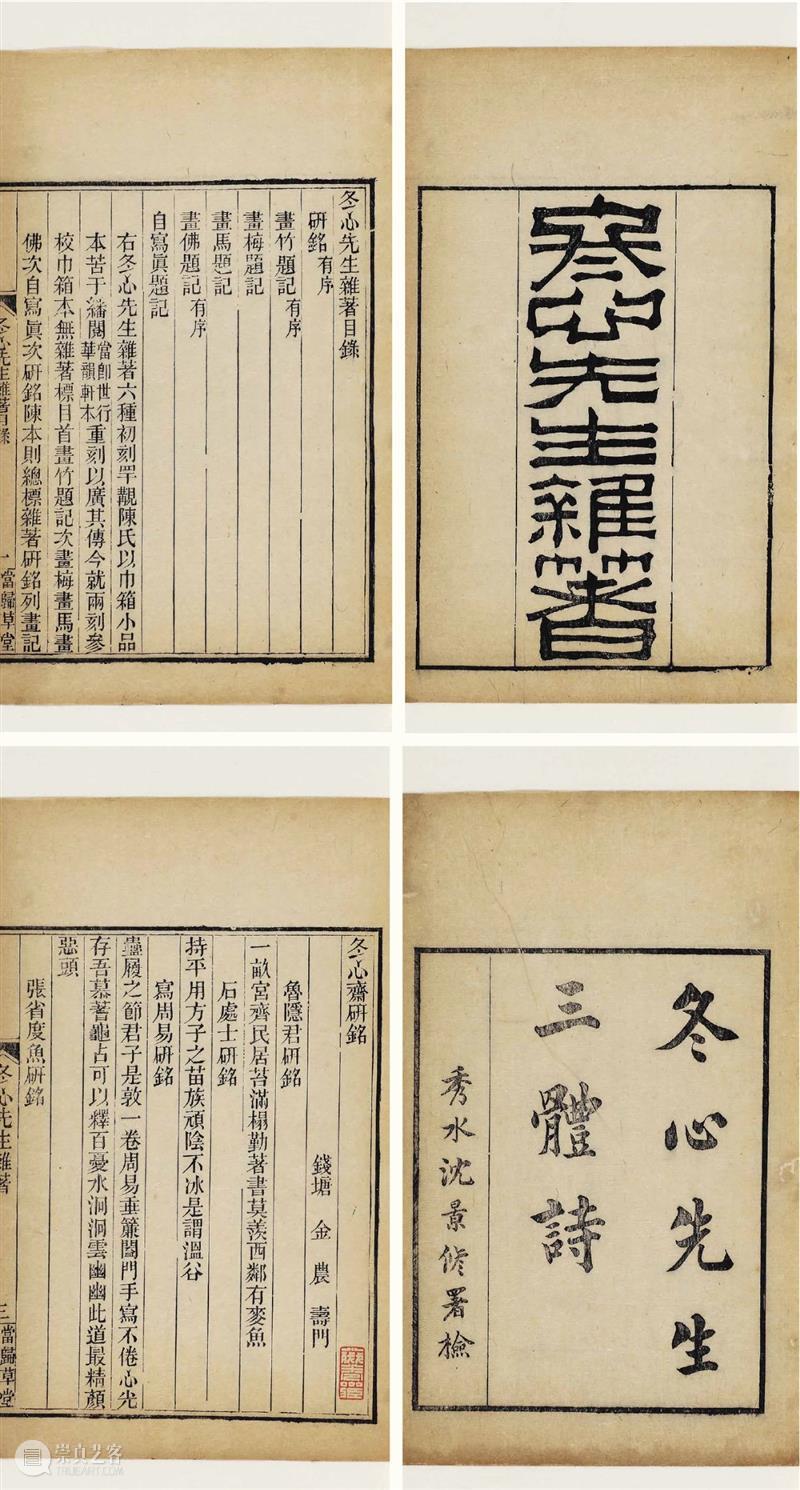 冬心先生雜著
冬心先生雜著目錄
研銘有序
畫竹題記有序
畫梅題記
畫馬題記
畫佛題記有序
自寫眞題記
右冬心先生雜著六種初刻罕覯陳氏以巾箱小品
本苦于繙閱當卽世行華韻軒本重刻以廣其傳今就兩刻參
校巾箱本無雜著標目首畫竹題記次畫梅畫馬畫
佛次自寫眞次研銘陳本則總標雜著研銘列畫記
冬心先生雜著目錄
一
當歸草堂
冬心先生
三體詩
秀水沈景修署檢
冬心齋研銘
錢塘 金農 壽門
魯隱君研銘
一畝宮齊民居苔滿榻勤著書莫羨西鄰有麥魚
石處士研銘
持平用方子之苗族頑陰不冰是謂溫谷
寫周易研銘
蠱履之節君子是敦一卷周易垂簾閤門手寫不倦心光
存吾慕蓍龜占可以釋百憂水洄洄雲幽幽此道最精顏
惡頭
張省度魚研銘
冬心先生雜著
三
當歸草堂
崇真艺客
TRUEART.COM